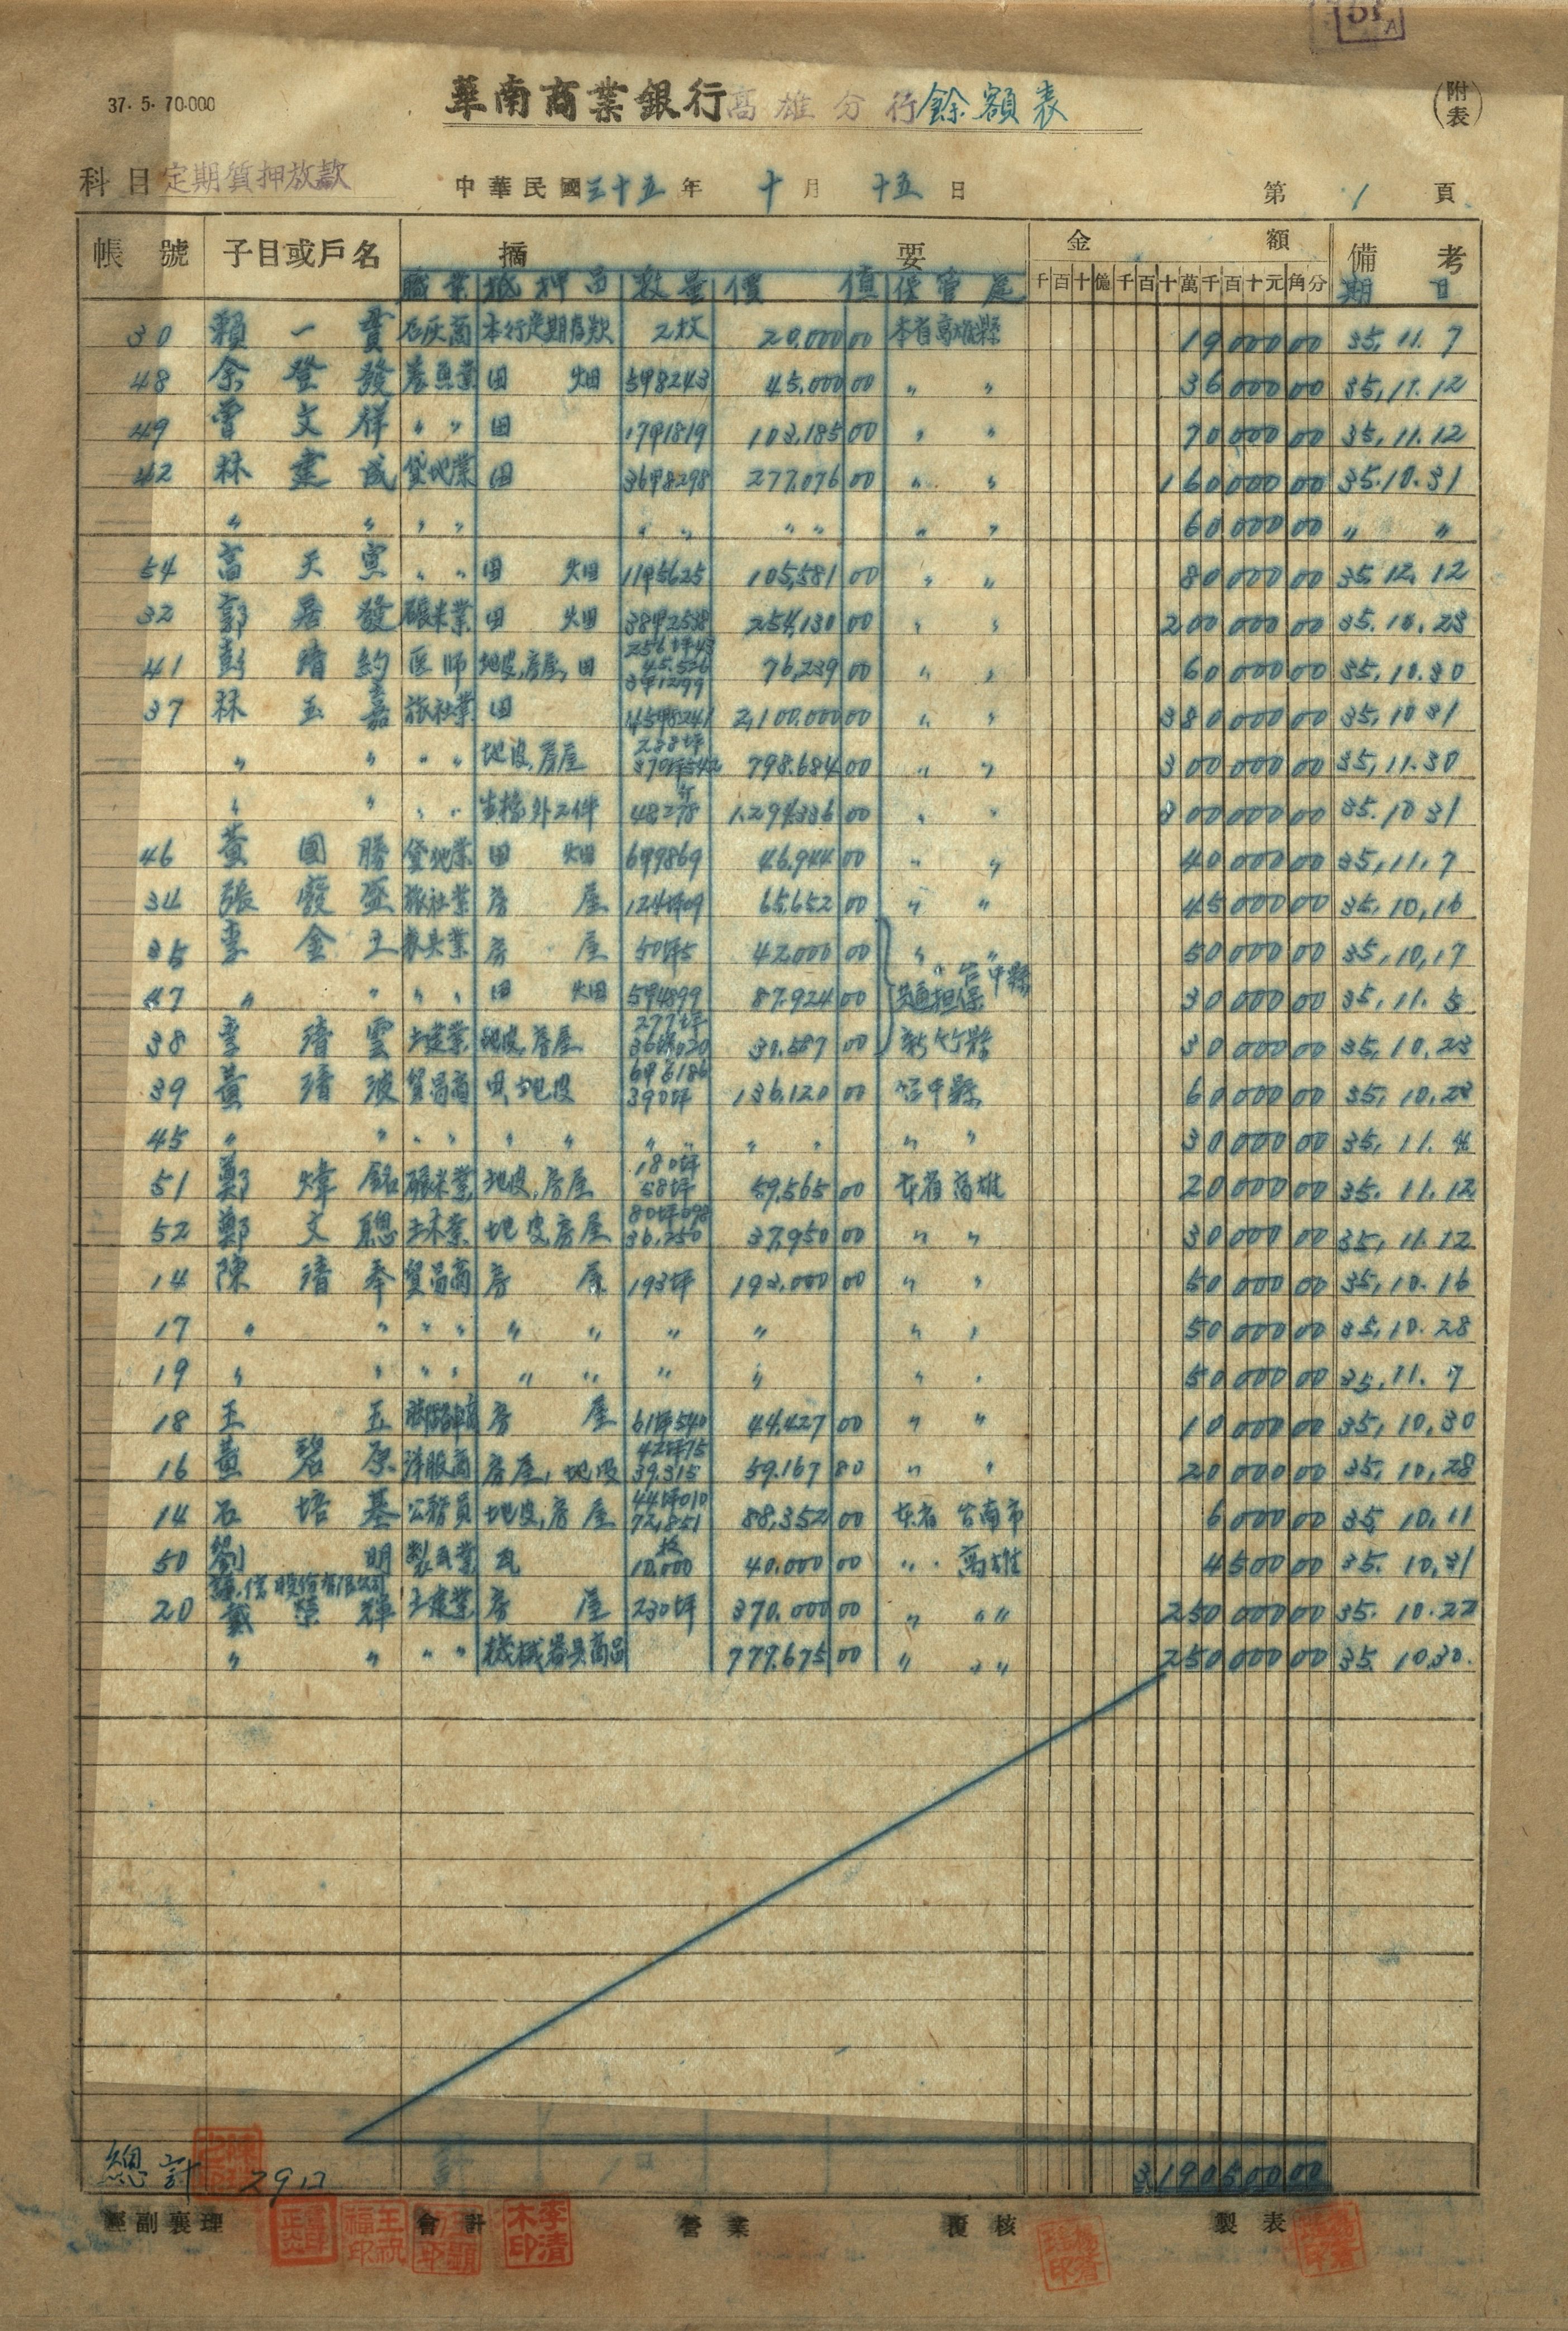 37. 5. 70.000
華南商業銀行高雄分行餘額表
(附表)
科目 定期質押放款
中華民國三十五年 十月 十五日
第 1 頁
帳號 子目或戶名 摘要 金額 備考
職業 抵押品 數量 價值 保管 千百十億千百十萬千百十元角分 期日
30 賴一 石灰商 本行定期存款 2枚 20,000 00 本省高雄縣 19 000 00 35, 11. 7
48 余登發 養魚業 田 畑 5甲8243 45,000 00 〃 〃 36 000 00 35, 11. 12
49 曾文祥 〃 〃 田 17甲1819 103,185 00 〃 〃 70 000 00 35, 11. 12
42 林建成 貸地業 田 36甲8298 277,076 00 〃 〃 160 000 00 35. 10. 31
〃 〃 〃 〃 〃 〃 〃 〃 〃 〃 60 000 00 〃 〃
54 天 〃 〃 田 畑 11甲5625 105,581 00 〃 〃 80 000 00 35 12, 12
32 郭發 碾米業 田 畑 38甲2538 254,130 00 〃 〃 200 000 00 35. 10. 23
41 彭清約 医師 地皮,房屋,田 256坪43 45.526 3甲1299 76,239 00 〃 〃 60 000 00 35, 10. 30
37 林玉嘉 旅社業 田 45甲8241 2,100,000 00 〃 〃 380 000 00 35, 10 31
〃 〃 〃 〃 地皮,房屋 238坪 370坪542 798.684 00 〃 〃 300 000 00 35, 11. 30
〃 〃 〃 〃 外2件 48278 1,294,336 00 〃 〃 300 000 00 35. 10 31
46 黃團勝 貸地業 田 畑 6甲9869 46,944 00 〃 〃 40 000 00 35, 11. 7
34 張發盛 旅社業 房 屋 124坪09 65,652 00 〃 〃 45 000 00 35, 10, 16
35 李金土 家具業 房 屋 50坪5 42,000 00 〃 〃 50 000 00 35, 10, 17
47 〃 〃 〃 〃 田 畑 5甲4899 87,924 00 〃 台中縣 共通担保 30 000 00 35, 11. 5
38 李清雲 土建業 地皮,房屋 277坪 36坪020 30,587 00 新竹縣 30 000 00 35, 10, 23
39 黃清波 貿易商 田,地皮 6甲6186 390坪 136,120 00 台中縣 60 000 00 35, 10, 28
45 〃 〃 〃 〃 〃 〃 〃 〃 〃 〃 〃 〃 30 000 00 35, 11. 4
51 鄭煒銘 碾米業 地皮,房屋 180坪 58坪 59,565 00 本省高雄 20 000 00 35. 11. 12
52 鄭文聰 土木業 地皮,房屋 80坪698 36,250 37,950 00 〃 〃 30 000 00 35, 11. 12
14 陳清奉 貿易商 房 屋 193坪 193,000 00 〃 〃 50 000 00 35, 10. 16
17 〃 〃 〃 〃 〃 〃 〃 〃 〃 〃 50 000 00 35, 10. 28
19 〃 〃 〃 〃 〃 〃 〃 〃 〃 〃 50 000 00 35, 11. 7
18 王五 房 屋 61坪540 44,427 00 〃 〃 10 000 00 35, 10, 30
16 黃碧原 洋服商 房屋,地皮 42坪75 39.315 59,167 80 〃 〃 20 000 00 35, 10, 28
14 石培基 公務員 地皮,房屋 44坪010 72,851 88,352 00 本省 台南市 6 000 00 35, 10, 11
50 劉明 製瓦業 瓦 10,000 枚 40,000 00 〃 高雄 4 500 00 35. 10, 31
20 股份有限公司 戴榮輝 土建業 房 屋 230坪 370,000 00 〃 〃〃 250 000 00 35. 10. 22
〃 〃 〃 〃 機械器具商品 779,675 00 〃 〃〃 250 000 00 35. 10,30.
總計 29口 計 3,190,500 00
經副襄理 會計 營業 覆核 製表
王祝福印
李清木印